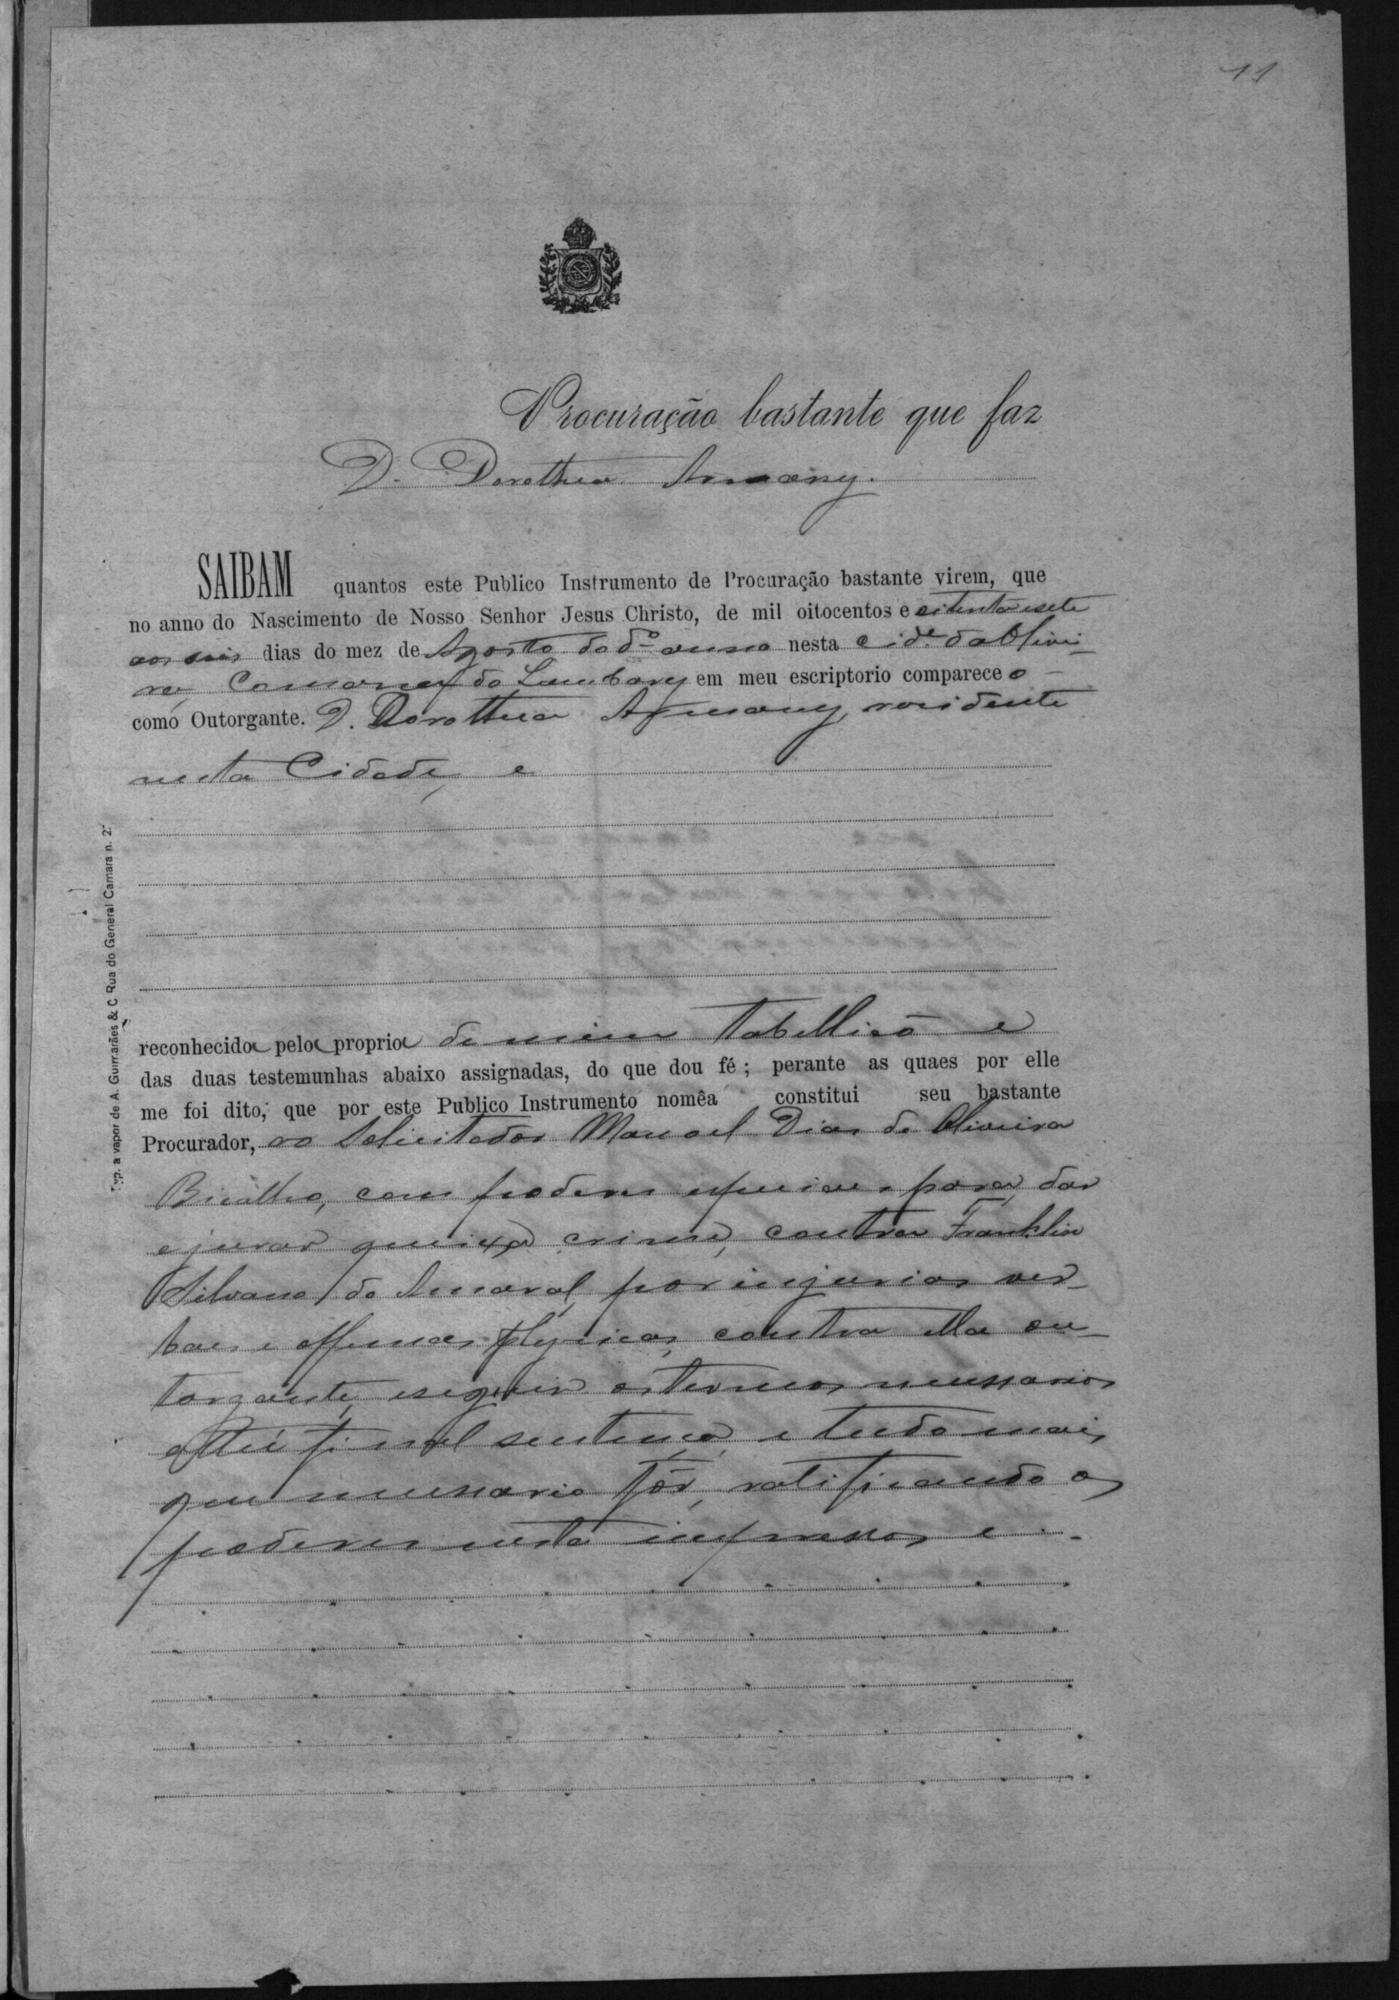 11
Procuração bastante que faz
D. Dorothea Armony.
SAIBAM quantos este Publico Instrumento de Procuração bastante virem, que
no anno do Nascimento de Nosso Senhor Jesus Christo, de mil oitocentos e oitenta e sete
aos seis dias do mez de Agosto do dº anno nesta cidᵉ da Olivei-
ra, Comarca do Lambary em meu escriptorio comparece o
como Outorgante. D. Dorothea Armony, residente
nesta Cidade, e
reconhecida pela propria de mim Tabellião e
das duas testemunhas abaixo assignadas, do que dou fé; perante as quaes por elle
me foi dito, que por este Publico Instrumento nomêa constitui seu bastante
Procurador, ao Solicitador Manoel Dias de Oliveira
Bicalho, com poderes especiaes para dar
e jurar queixa crime, contra Franklin
Silvano do Amaral, por injurias ver-
baes e offensas physicas, contra ella ou-
torgante, e seguir os termos necessarios
até final sentença, e tudo mais,
que necessario fôr, ratificando os
poderes nesta impressos e
Typ. a vapor de A. Guimarães & C. Rua do General Camara n. 2